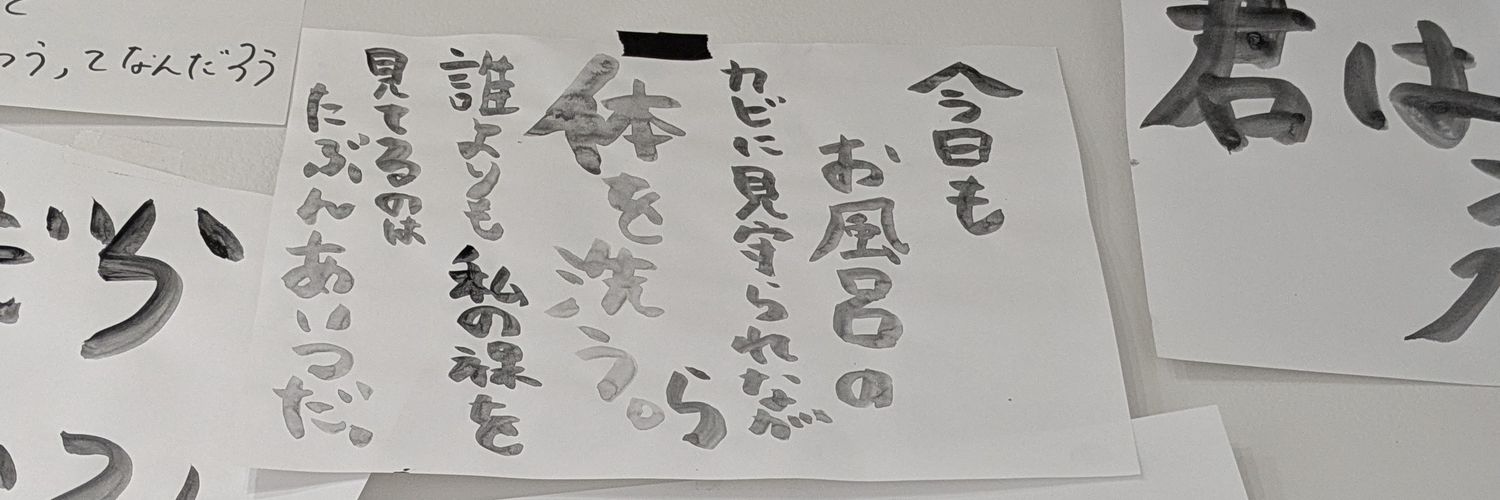 今日も
お風呂の
カビに見守られながら
体を洗う。
誰よりも私の裸を
見てるのは
たぶんあいつだ。
って なんだろう
君は